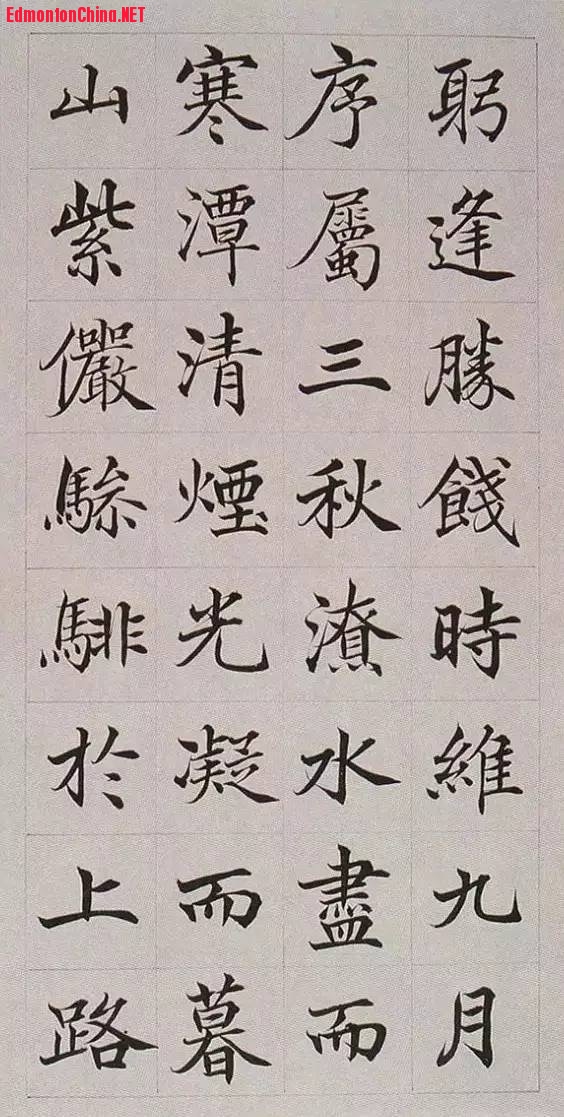 EdmontonChina.NET
躬逢勝餞時維九月
序屬三秋潦水盡而
寒潭清煙光凝而暮
山紫儼驂騑於上路